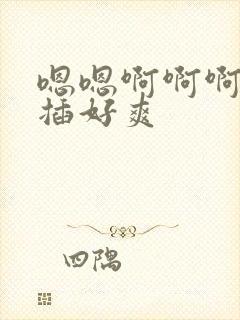 嗯嗯啊啊啊
插好爽
四隅